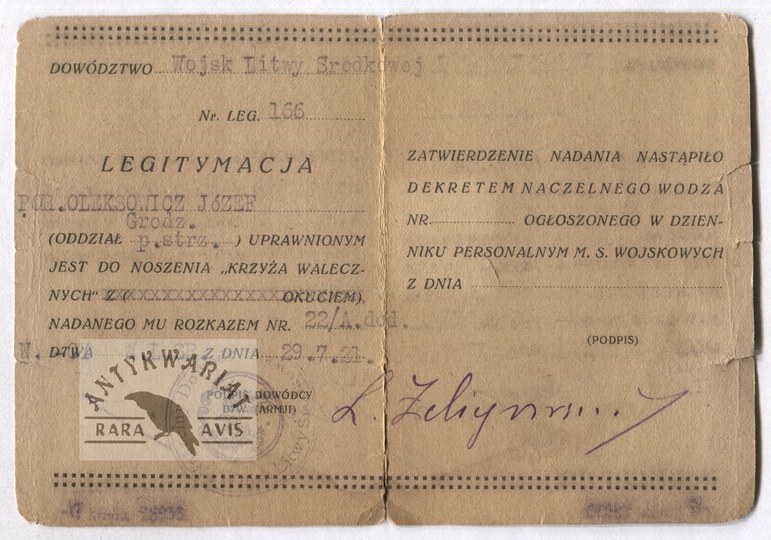 DOWÓDZTWO Wojsk Litwy Srodkowej
Nr. LEG. 166
LEGITYMACJA
POR. OLEKSOWICZ JÓZEF
Grodz.
(ODDZIAŁ p.strz. ) UPRAWNIONYM
JEST DO NOSZENIA „KRZYŻA WALECZ-
NYCH" Z ( OKUCIEM),
NADANEGO MU ROZKAZEM NR. 22/A.dod.
DTWA Z DNIA 29.7.21.
PODPIS DOWÓDCY
DTW. (ARMJI)
ZATWIERDZENIE NADANIA NASTĄPIŁO
DEKRETEM NACZELNEGO WODZA
NR. OGŁOSZONEGO W DZIEN-
NIKU PERSONALNYM M. S. WOJSKOWYCH
Z DNIA
(PODPIS)
L. Żeligowski
ANTYKWARIAT
RARA AVIS